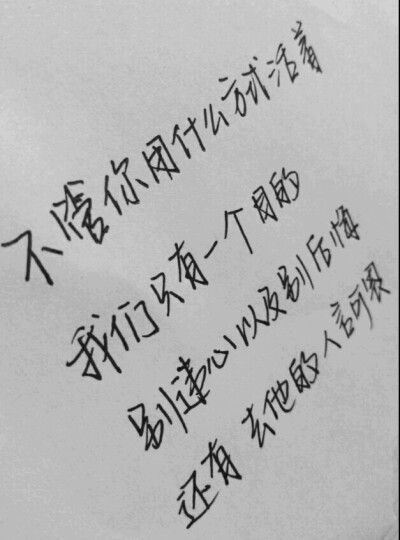 不管你用什么方式活着
我们只有一个目的
别违心以及别后悔
还有去他的人言可畏